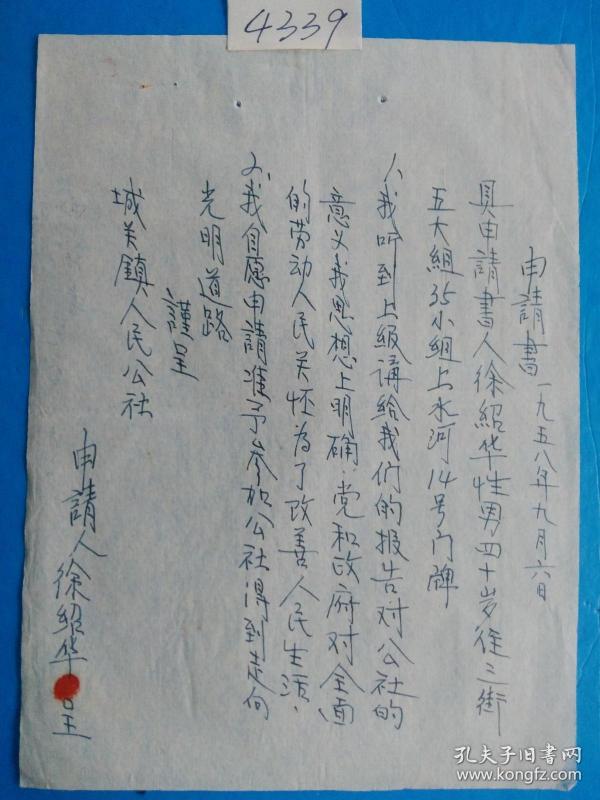 4339
申請書 一九五八年九月六日
具申請書人徐紹华性男四十岁住三街
五大組35小組上水河14号门牌
1、我听到上級講給我们的报告对公社的
意义我思想上明确:党和政府对全面
的劳动人民关怀为了改善人民生活、
2、我自愿申請准予参加公社得到走向
光明道路
謹呈
城关鎮人民公社
申請人徐紹华呈
孔夫子旧书网
www.kongfz.com